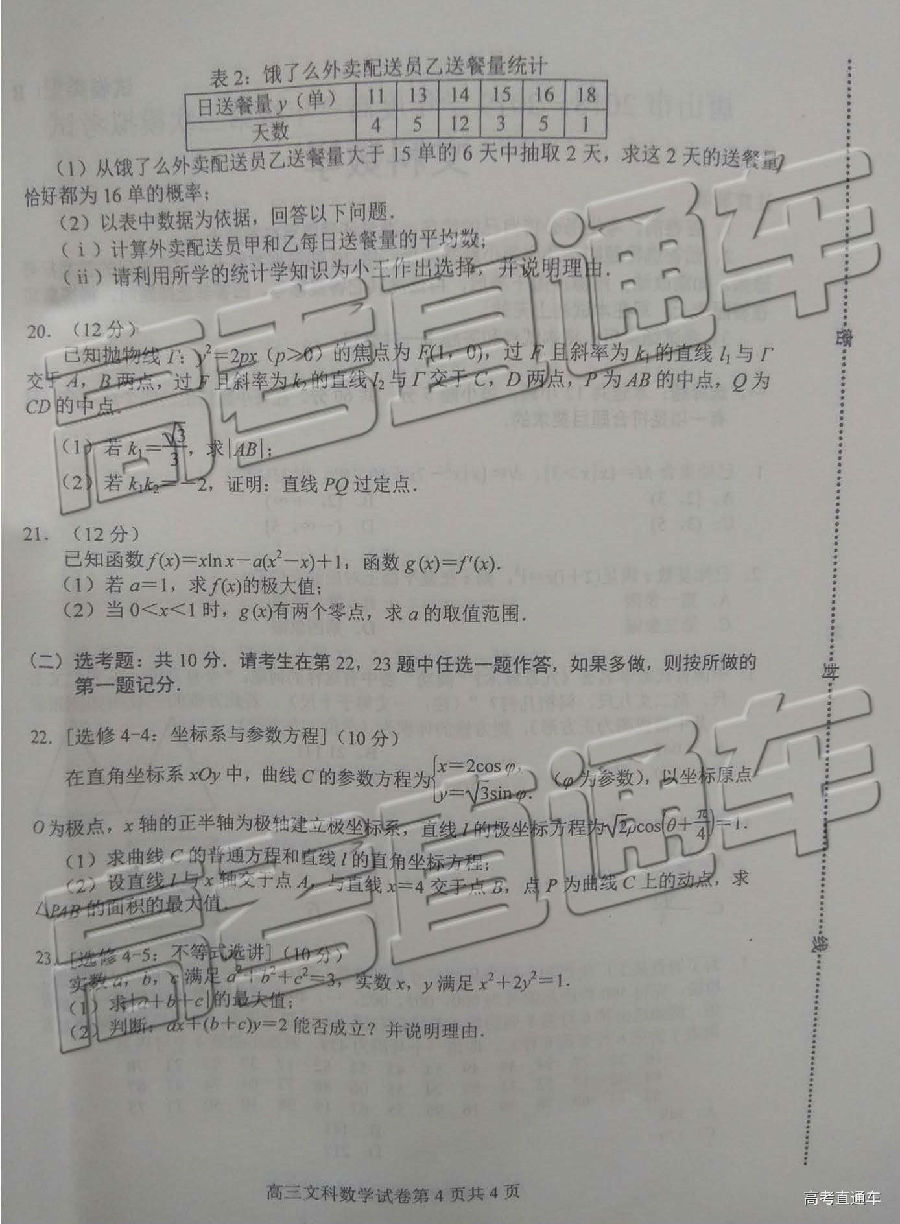 表2：饿了么外卖配送员乙送餐量统计
日送餐量 y（单） 11 13 14 15 16 18
天数 4 5 12 3 5 1
（1）从饿了么外卖配送员乙送餐量大于15单的6天中抽取2天，求这2天的送餐量
恰好都为16单的概率；
（2）以表中数据为依据，回答以下问题．
（ⅰ）计算外卖配送员甲和乙每日送餐量的平均数；
（ⅱ）请利用所学的统计学知识为小王作出选择，并说明理由．
20．（12分）
已知抛物线Γ：y²=2px（p>0）的焦点为F(1，0)，过F且斜率为k₁的直线l₁与Γ
交于A，B两点，过F且斜率为k₂的直线l₂与Γ交于C，D两点，P为AB的中点，Q为
CD的中点．
（1）若k₁=√3/3，求|AB|；
（2）若k₁k₂=－2，证明：直线PQ过定点．
21．（12分）
已知函数f(x)=xln x－a(x²－x)+1，函数g(x)=f′(x)．
（1）若a=1，求f(x)的极大值；
（2）当0<x<1时，g(x)有两个零点，求a的取值范围．
（二）选考题：共10分．请考生在第22，23题中任选一题作答，如果多做，则按所做的
第一题记分．
22．[选修4-4：坐标系与参数方程]（10分）
在直角坐标系xOy中，曲线C的参数方程为{x=2cos φ，y=√3sin φ．（φ为参数），以坐标原点
O为极点，x轴的正半轴为极轴建立极坐标系，直线l的极坐标方程为√2ρcos(θ+π/4)=1．
（1）求曲线C的普通方程和直线l的直角坐标方程；
（2）设直线l与x轴交于点A，与直线x=4交于点B，点P为曲线C上的动点，求
△PAB的面积的最大值．
23．[选修4-5：不等式选讲]（10分）
实数a，b，c满足a²+b²+c²=3，实数x，y满足x²+2y²=1．
（1）求|a+b+c|的最大值；
（2）判断：ax+(b+c)y=2能否成立？并说明理由．
密
封
线
高考直通车
高考直通车
高三文科数学试卷第4页共4页
高考直通车